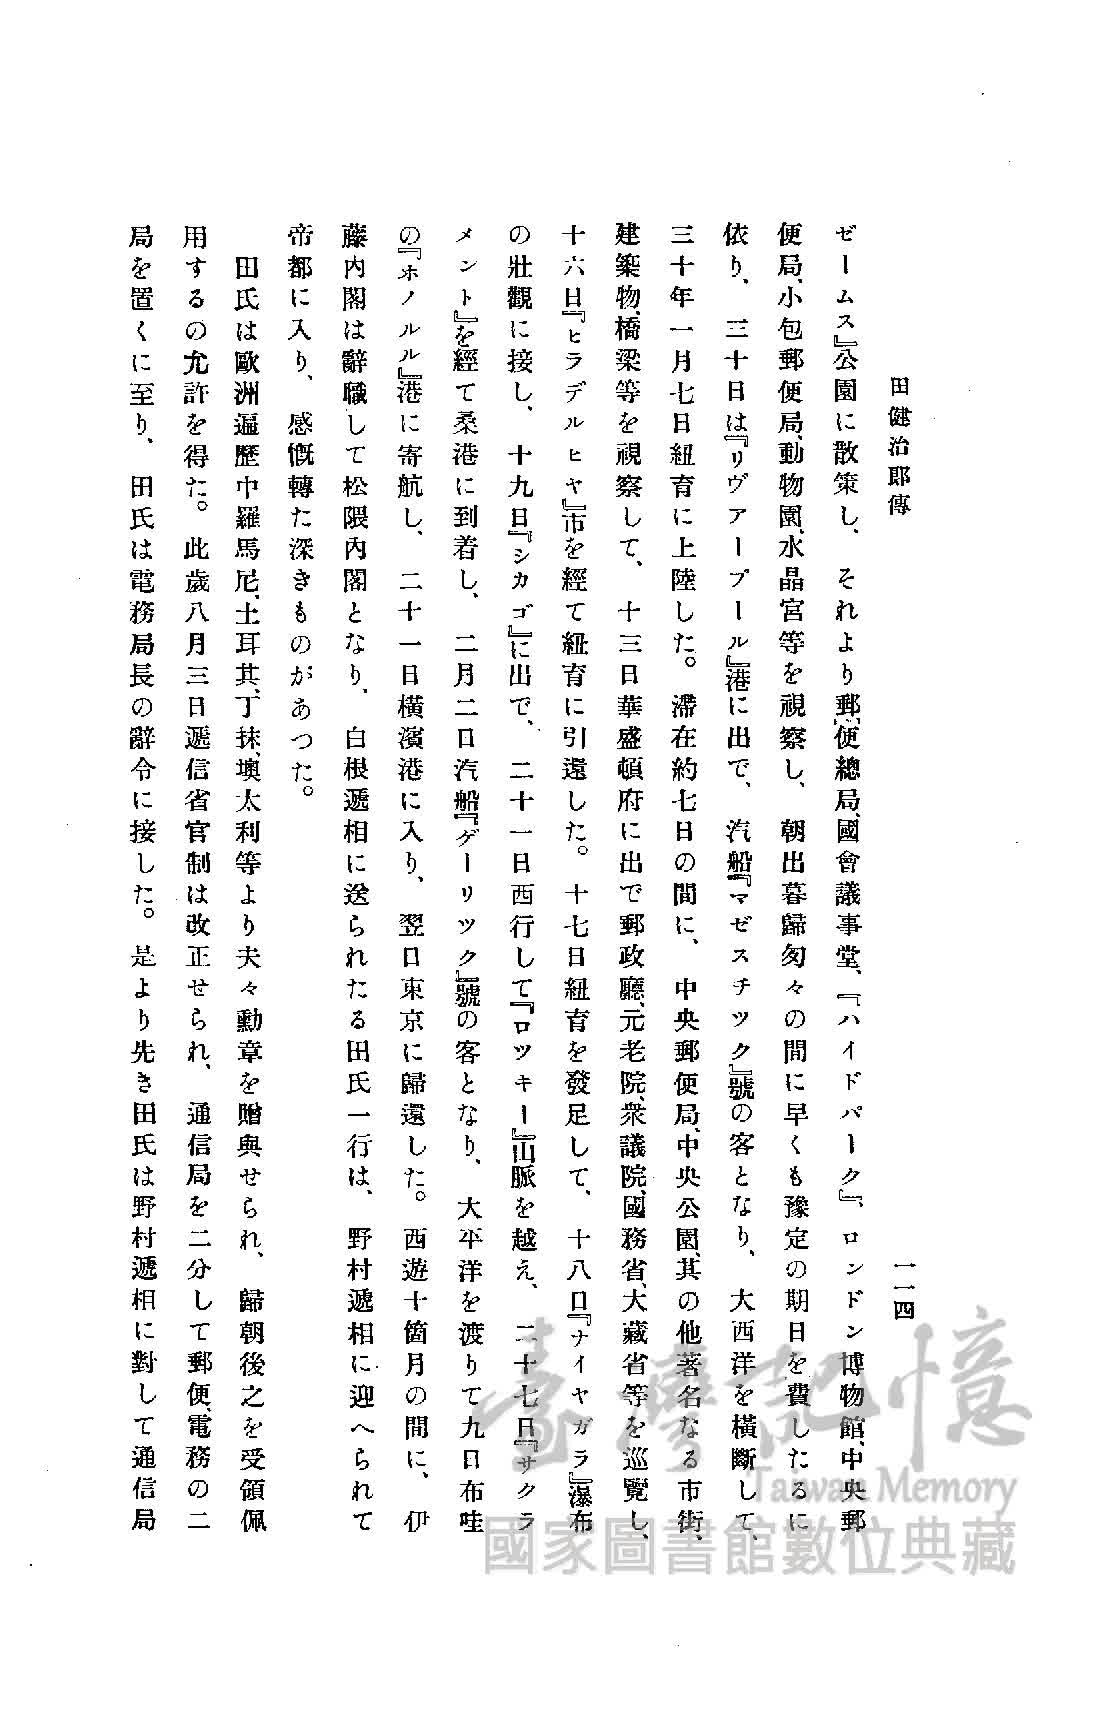 田健治郎傳
一一四
ゼームス』公園に散策し、それより郵便總局、國會議事堂、『ハイドパーク』、ロンドン博物館、中央郵
便局、小包郵便局、動物園、水晶宮等を視察し、朝出暮歸匆々の間に早くも豫定の期日を費したるに
依り、三十日は『リヴアープール』港に出で、汽船『マゼスチツク』號の客となり、大西洋を橫斷して、
三十年一月七日紐育に上陸した。滯在約七日の間に、中央郵便局、中央公園、其の他著名なる市街、
建築物、橋梁等を視察して、十三日華盛頓府に出で郵政廳、元老院、衆議院、國務省、大藏省等を巡覽し、
十六日『ヒラデルヒヤ』市を經て紐育に引還した。十七日紐育を發足して、十八日『ナイヤガラ』瀑布
の壯觀に接し、十九日『シカゴ』に出で、二十一日西行して『ロツキー』山脈を越え、二十七日『サクラ
メント』を經て桑港に到着し、二月二日汽船『ゲーリツク』號の客となり、大平洋を渡りて九日布哇
の『ホノルル』港に寄航し、二十一日橫濱港に入り、翌日東京に歸還した。西遊十箇月の間に、伊
藤內閣は辭職して松隈內閣となり、白根遞相に送られたる田氏一行は、野村遞相に迎へられて
帝都に入り、感慨轉た深きものがあつた。
田氏は歐洲遍歷中羅馬尼、土耳其、丁抹、墺太利等より夫々勳章を贈與せられ、歸朝後之を受領佩
用するの允許を得た。此歲八月三日遞信省官制は改正せられ、通信局を二分して郵便、電務の二
局を置くに至り、田氏は電務局長の辭令に接した。是より先き田氏は野村遞相に對して通信局
臺灣記憶
Taiwan Memory
國家圖書館數位典藏